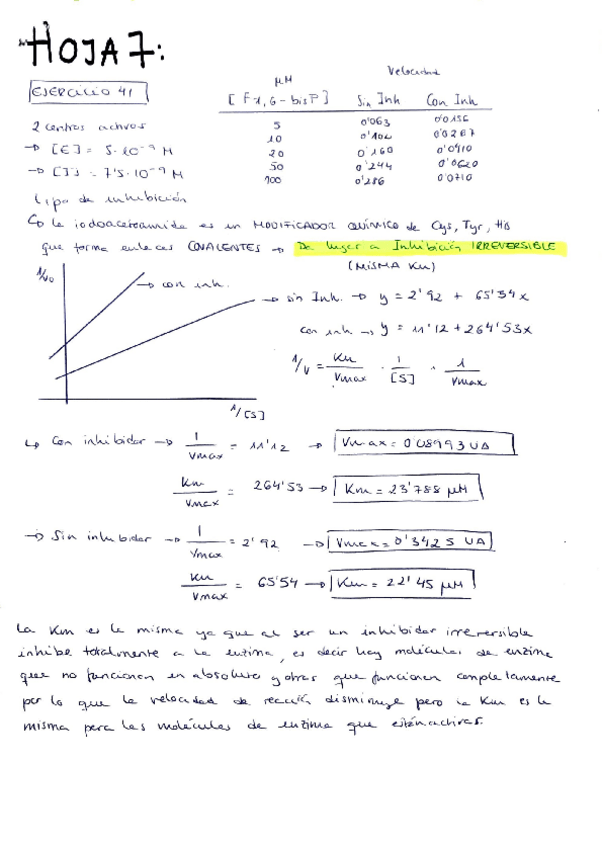 HOJA 7:
EJERCICIO 41
μM Velocidad
[F1,6-bisP] Sin Inh Con Inh
5 0'063 0'0156
10 0'102 0'0267
20 0'160 0'0410
50 0'244 0'0620
100 0'286 0'0710
2 centros activos
→ [E] = 5·10⁻⁹ M
→ [I] = 7'5·10⁻⁹ M
¿Tipo de inhibición
la iodoacetoamida es un MODIFICADOR QUÍMICO de Cys, Tyr, His
que forma enlaces COVALENTES → Da lugar a Inhibición IRREVERSIBLE
(MISMA Km)
1/V₀
→ con inh.
→ sin Inh. → y = 2'92 + 65'54x
con inh → y = 11'12 + 264'53x
1/V = Km/Vmax · 1/[S] · 1/Vmax
1/[S]
↳ Con inhibidor → 1/Vmax = 11'12 → Vmax = 0'08993 UA
Km/Vmax = 264'53 → Km = 23'788 μM
→ Sin inhibidor → 1/Vmax = 2'92 → Vmax = 0'3425 UA
Km/Vmax = 65'54 → Km = 22'45 μM
La Km es la misma ya que al ser un inhibidor irreversible
inhibe totalmente a la enzima, es decir hay moléculas de enzima
que no funcionan en absoluto y otras que funcionan completamente
por lo que la velocidad de reacción disminuye pero la Km es la
misma para las moléculas de enzima que están activas.